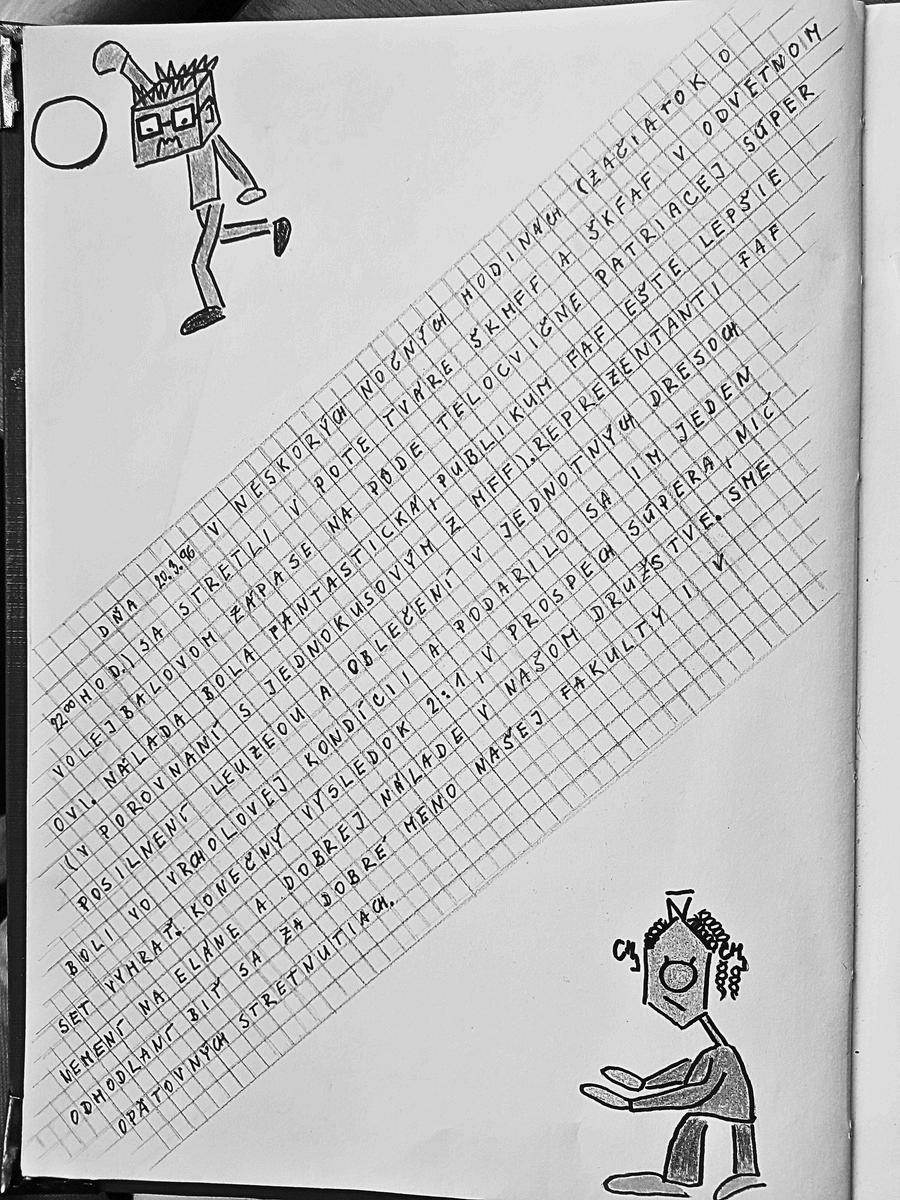 DŇA 20.3.96 V NESKORÝCH NOČNÝCH HODINÁCH (ZAČIATOK O
22⁰⁰ HOD.) SA STRETLI V POTE TVÁRE ŠK MFF A ŠK FAF V ODVETNOM
VOLEJBALOVOM ZÁPASE NA PÔDE TELOCVIČNE PATRIACEJ SÚPER
OVI. NÁLADA BOLA FANTASTICKÁ, PUBLIKUM FAF EŠTE LEPŠIE
(V POROVNANÍ S JEDNOKUSOVÝM Z MFF). REPREZENTANTI FAF
POSILNENÍ LEUZEOU A OBLEČENÍ V JEDNOTNÝCH DRESOCH
BOLI VO VRCHOLOVEJ KONDÍCII A PODARILO SA IM JEDEN
SET VYHRAŤ. KONEČNÝ VÝSLEDOK 2:1, V PROSPECH SÚPERA, NIČ
NEMENÍ NA ELÁNE A DOBREJ NÁLADE V NAŠOM DRUŽSTVE. SME
ODHODLANÍ BIŤ SA ZA DOBRÉ MENO NAŠEJ FAKULTY I V
OPÄTOVNÝCH STRETNUTIACH.
N
CH₃ CH₃